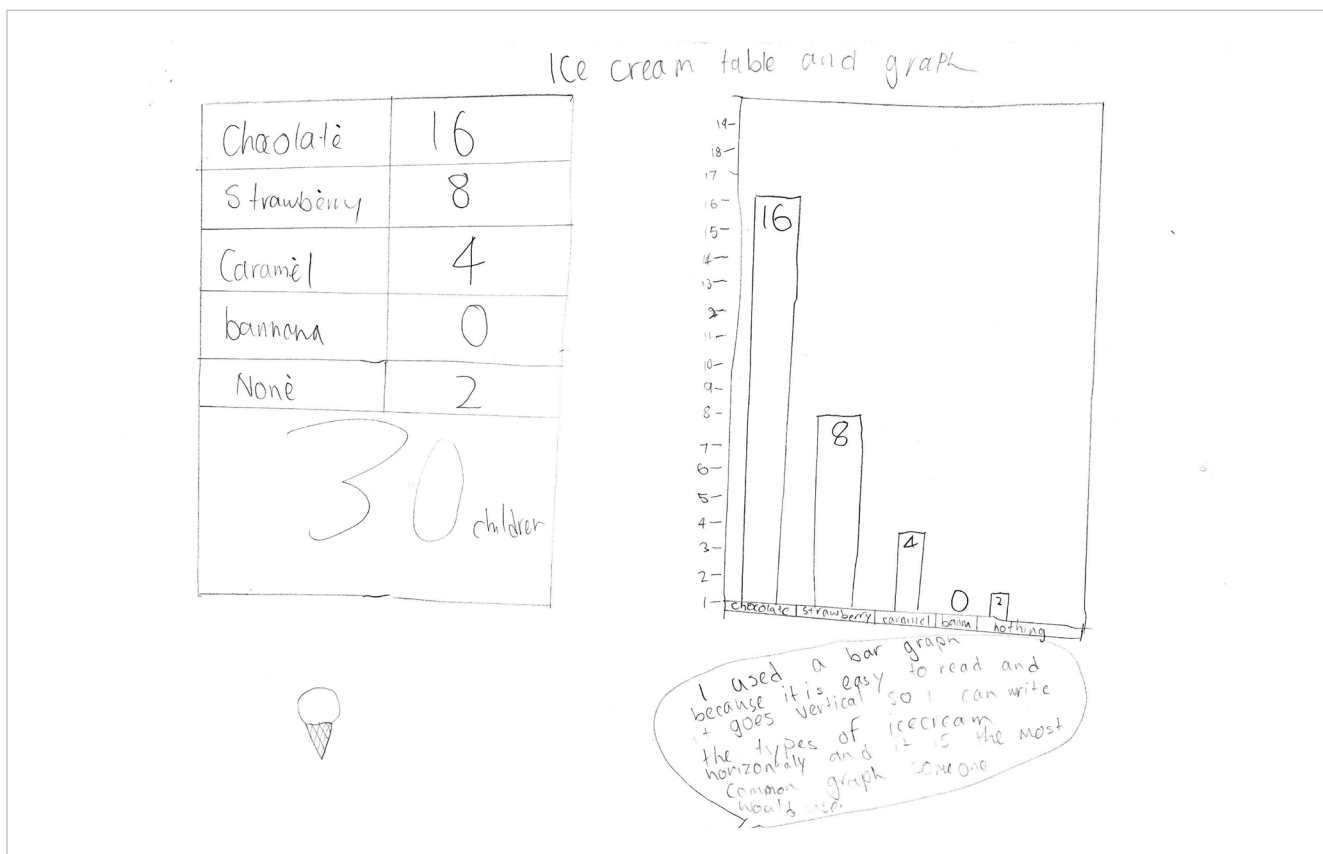 Ice cream table and graph
Chocolate 16
Strawberry 8
Caramel 4
bannana 0
None 2
30 children
19
18
17
16
15
14
13
12
11
10
9
8
7
6
5
4
3
2
1
16
8
4
0
2
chocolate strawberry caramel banan nothing
I used a bar graph
because it is easy to read and
it goes vertical so I can write
the types of icecream
horizontaly and it is the most
common graph someone
would use.